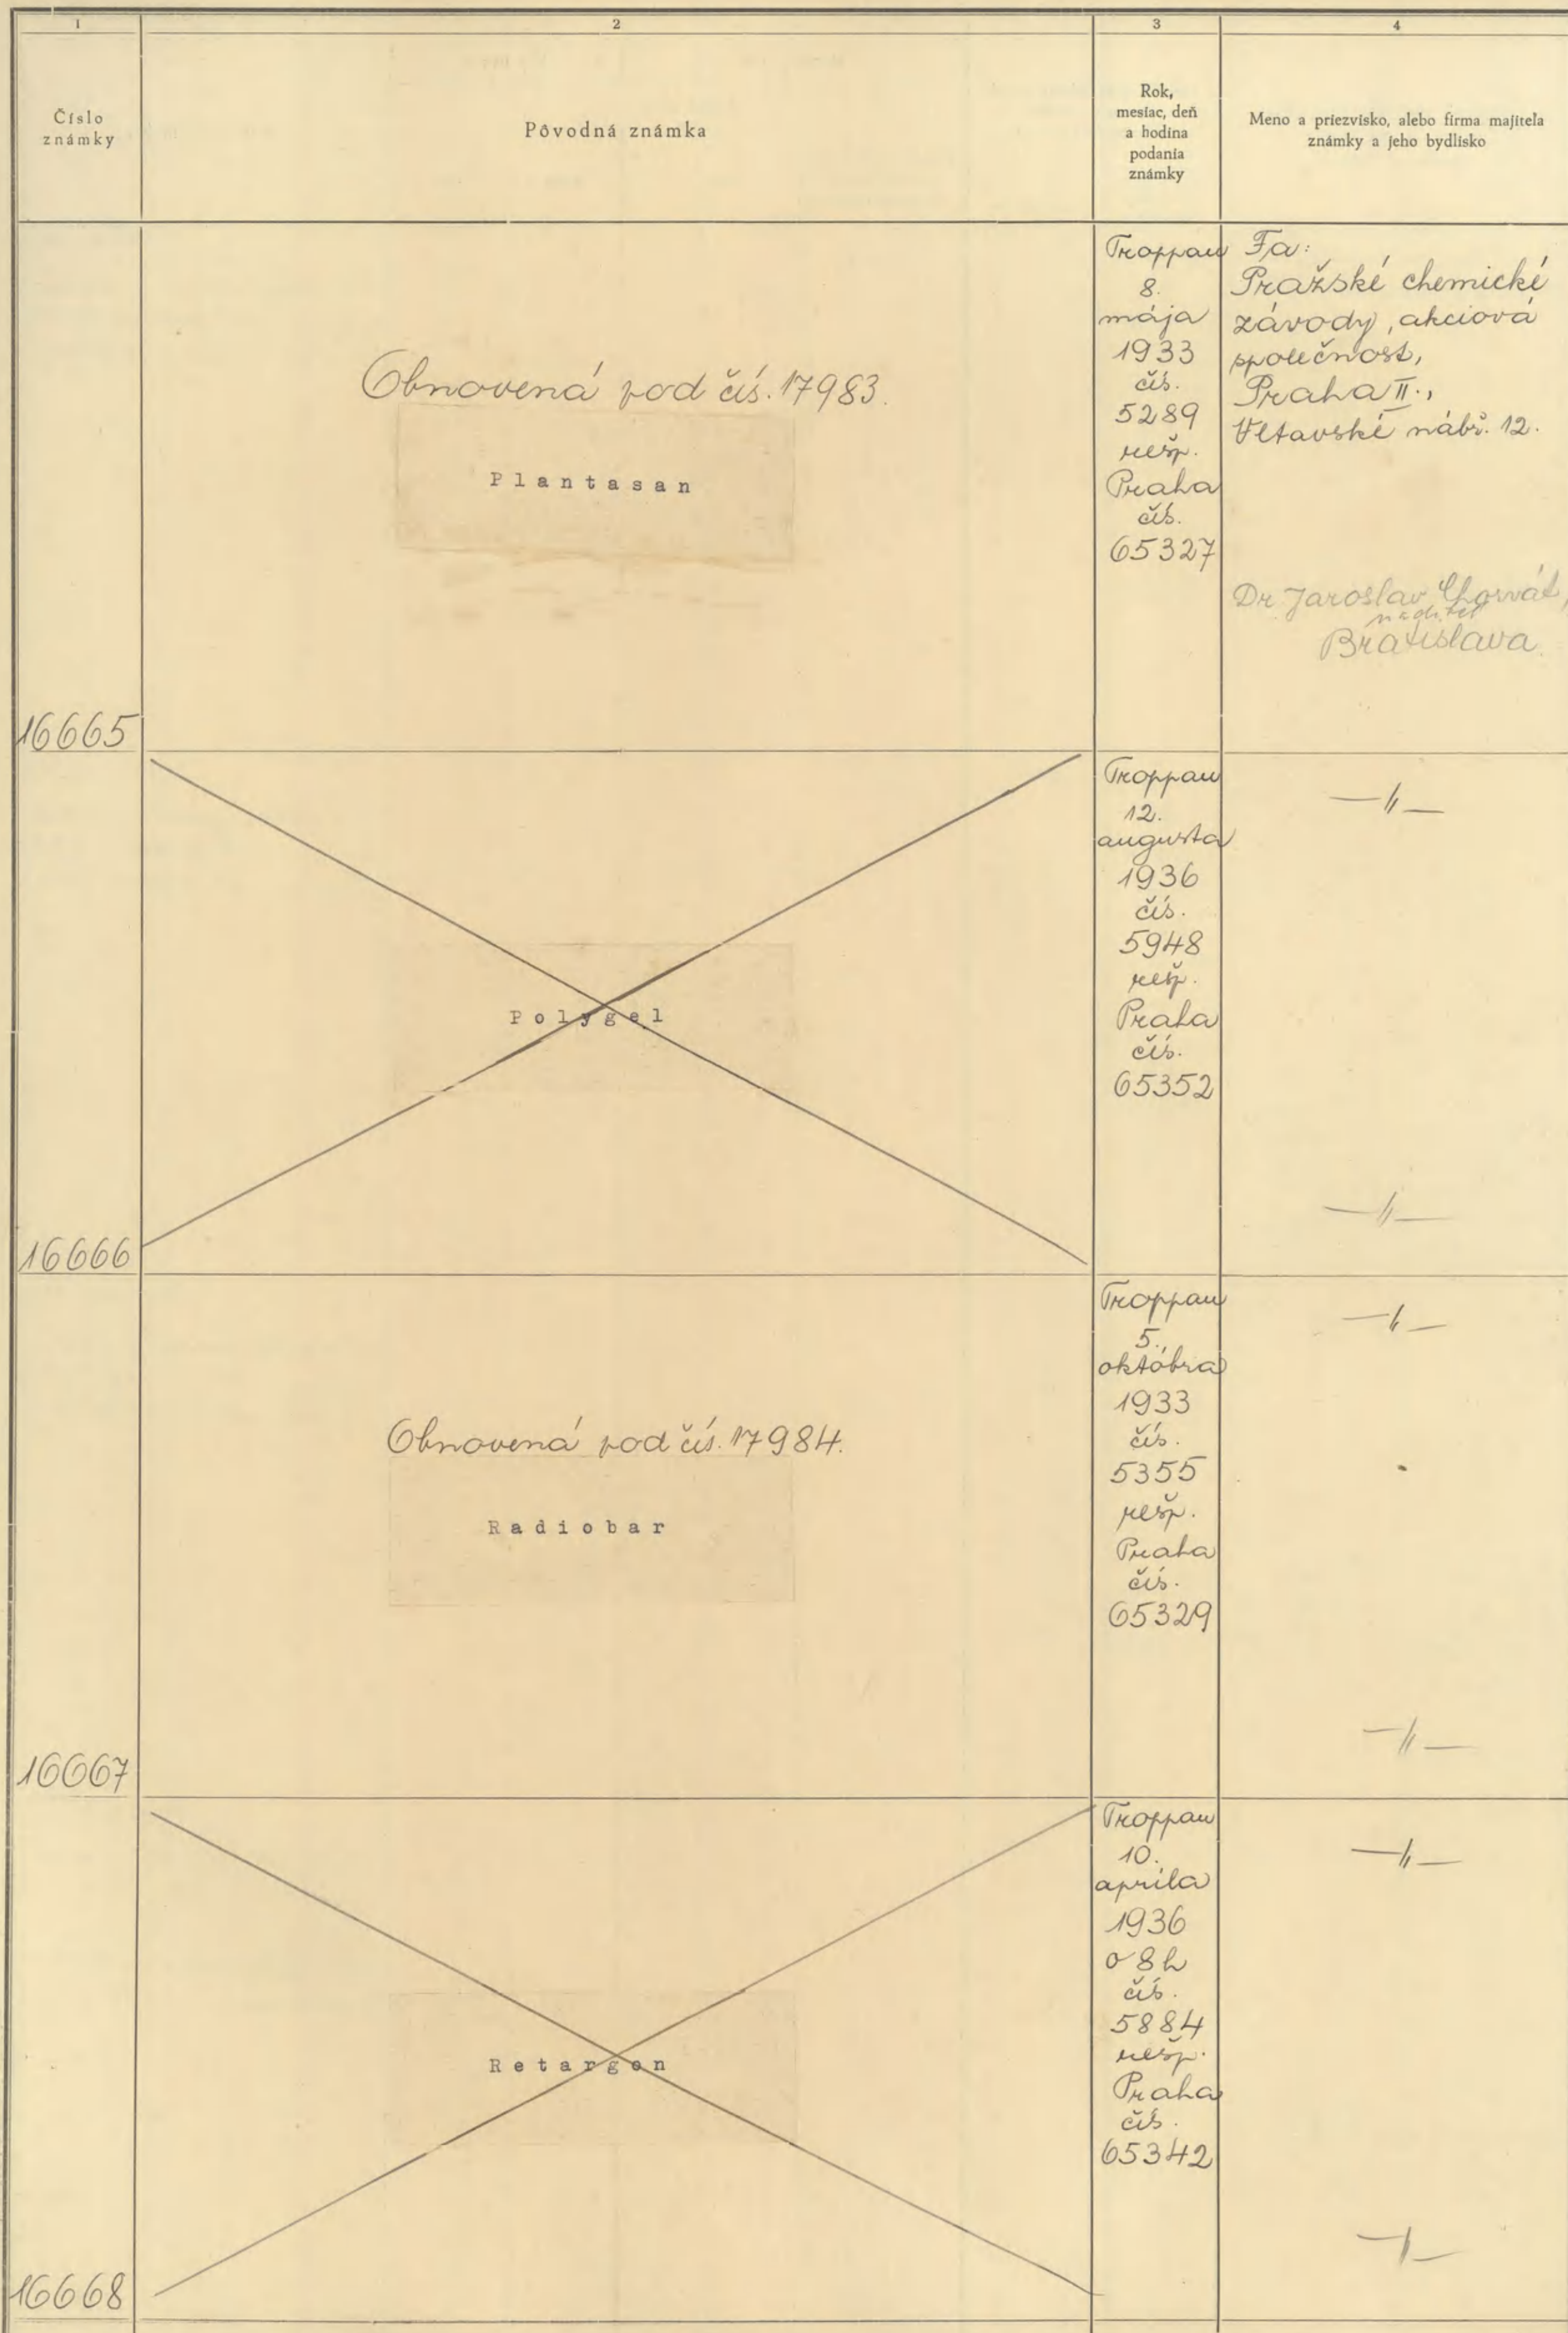 1
2
3
4
Číslo
známky
Pôvodná známka
Rok,
mesiac, deň
a hodina
podania
známky
Meno a priezvisko, alebo firma majiteľa
známky a jeho bydlisko
16665
Obnovená pod čís. 17983.
Plantasan
Troppau
8.
mája
1933
čís.
5289
rešp.
Praha
čís.
65327
Fa:
Pražské chemické
závody, akciová
společnost,
Praha II.,
Vltavské nábř. 12.
Dr. Jaroslav Chorvát,
Bratislava.
16666
Polygel
Troppau
12.
augusta
1936
čís.
5948
rešp.
Praha
čís.
65352
—〃—
—〃—
16667
Obnovená pod čís. 17984.
Radiobar
Troppau
5.
októbra
1933
čís.
5355
rešp.
Praha
čís.
65329
—〃—
—〃—
16668
Retargon
Troppau
10.
apríla
1936
o 8 h
čís.
5884
rešp.
Praha
čís.
65342
—〃—
—〃—